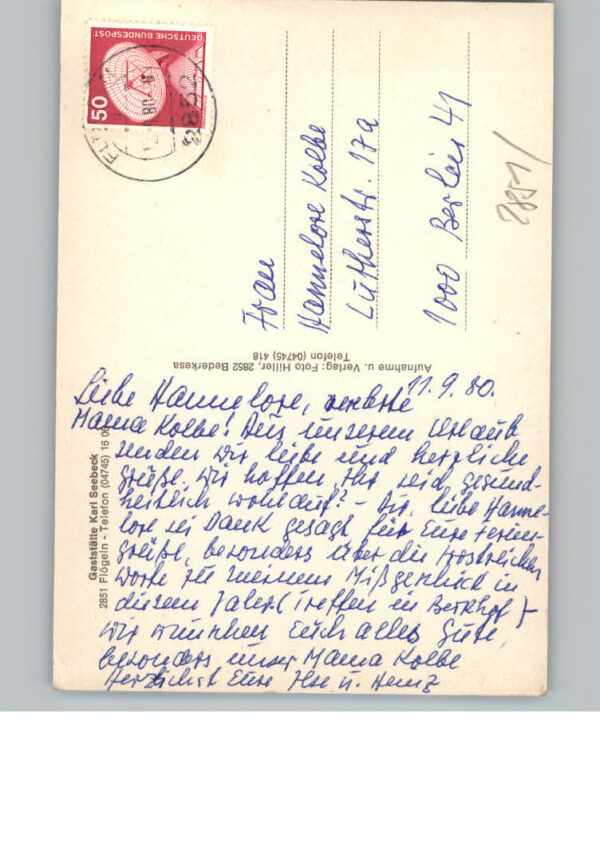 DEUTSCHE BUNDESPOST
50
2852
Frau
Hannelore Kolbe
Lutherstr. 17a
1000 Berlin 41
2851/
Aufnahme u. Verlag: Foto Hiller, 2852 Bederkesa
Telefon (04745) 418
Gaststätte Karl Seebeck
2851 Flögeln - Telefon (04745) 16 06
11.9.80.
Liebe Hannelore, verehrte
Mama Kolbe! Aus unserem Urlaub
senden wir liebe und herzliche
Grüße. Wir hoffen Ihr seid gesund-
heitlich wohlauf? - Dir, liebe Hanne-
lore sei Dank gesagt für Eure Ferien-
grüße, besonders über die trostreichen
Worte zu meinem Mißgeschick in
diesem Jahr. (Treffen in Berkhof) -
Wir wünschen Euch alles Gute,
besonders unser Mama Kolbe
Herzlichst Eure Ilse u. Heinz